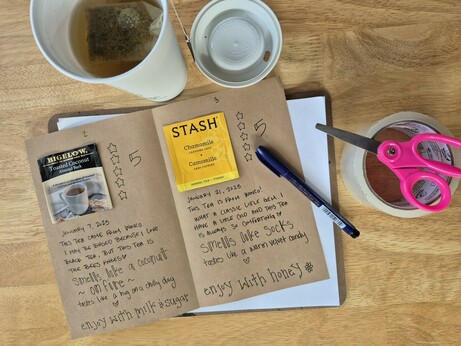 2
BIGELOW
Toasted Coconut
Almond Bark
5
JANUARY 7, 2025
THIS TEA CAME FROM
I WAS SO EXCITED BECAUSE I LOVE
BLACK TEA, BUT THIS TEA IS
THE BEES KNEES!
Smells like a coconut
~ on fire ~
tastes like a hug on a chilly day
enjoy with milk & sugar
3
STASH
Chamomile
Camomille
5
JANUARY 21, 2025
THIS TEA IS FROM
WHAT A CLASSIC LITTLE I
HAVE A LITTLE COLD AND THIS TEA
IS ALWAYS SO COMFORTING
Smells like socks
tastes like a warm velvet candy
enjoy with honey